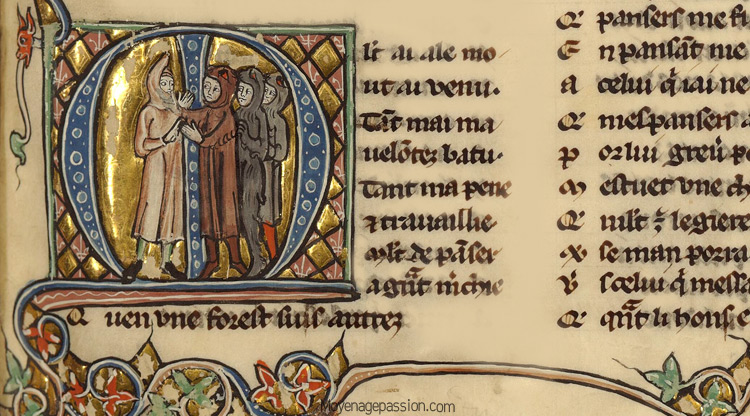 Mlt ai ale mo
ut ai venu.
Tāt mai ma
uelōtez batu.
Tant ma pene
⁊ trauaillie
Mlt de pāser
Q uen vne forest suis antrez
Q pansers me fi
E n pansāt me
A celui q̄ iai ne
Q mespansers
P or lui greu
M estuet vne ch
Q mlt legiere
se man porra
celui q̄ messa
Q q̄nt li hons e
Moyenagepassion.com